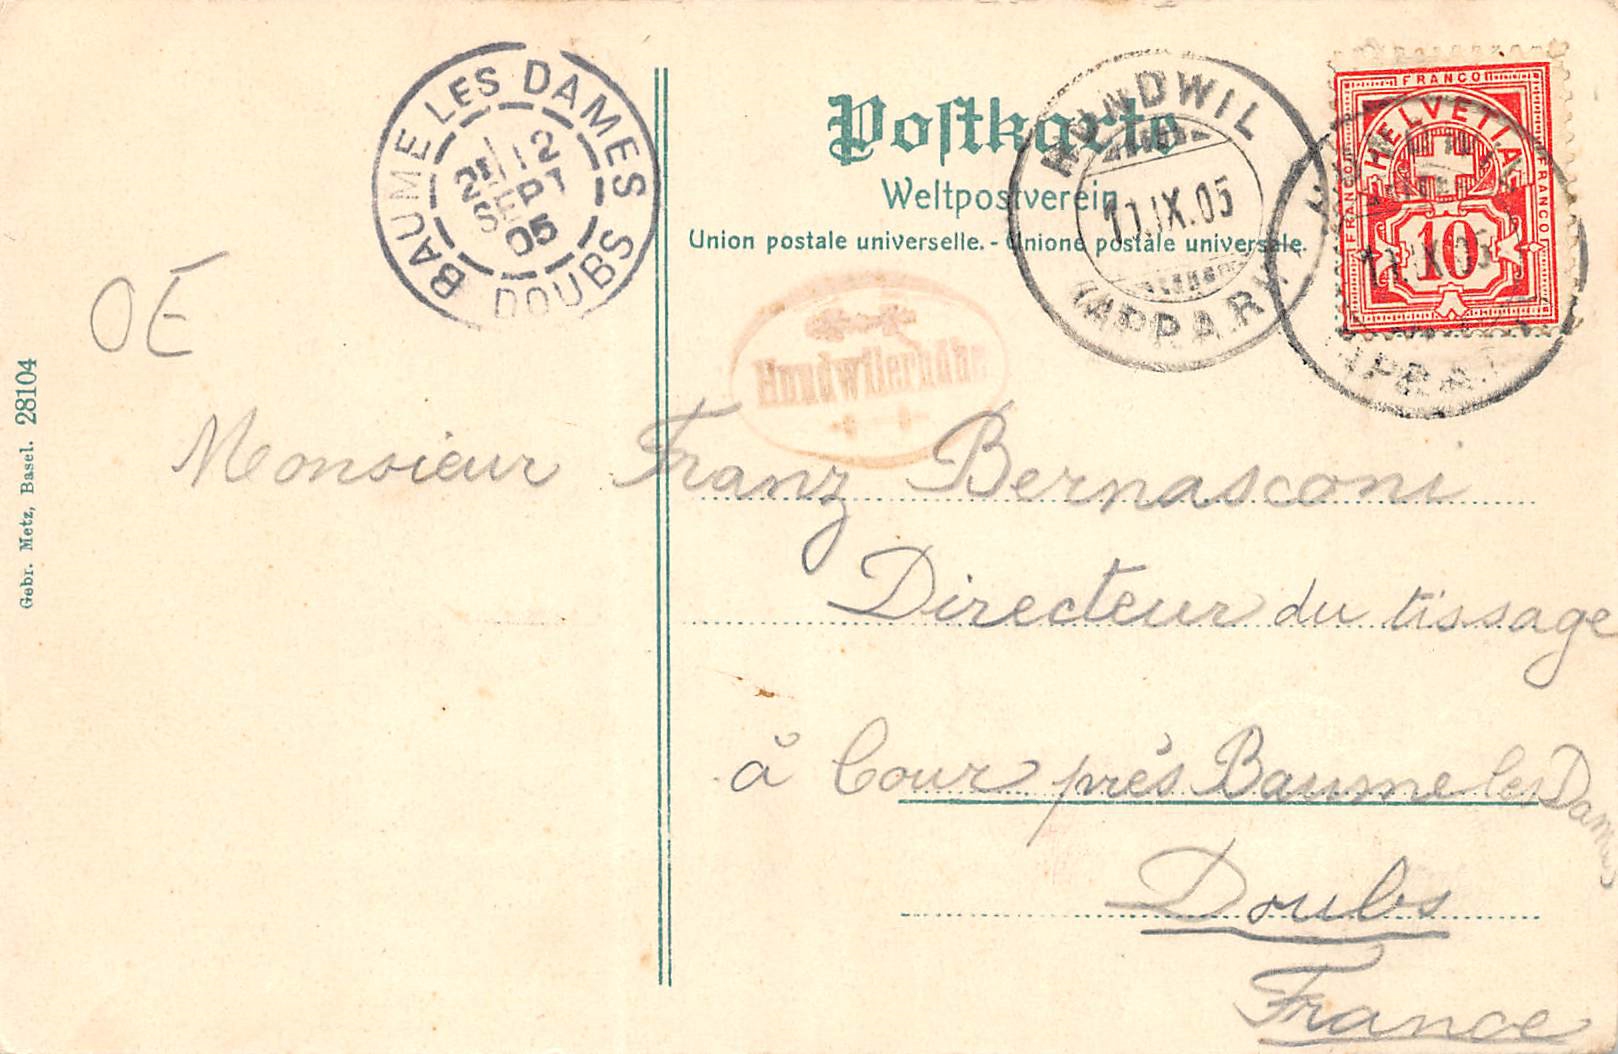 BAUME LES DAMES
12
SEPT
05
DOUBS
Postkarte
Weltpostverein
Union postale universelle. - Unione postale universale.
HUNDWIL
IX.05
(APP.A.RH.)
FRANCO
HELVETIA
FRANCO
FRANCO
10
IX.05
Hundwilerhöhe
OE
Gebr. Metz, Basel. 28104
Monsieur Franz Bernasconi
Directeur du tissage
à Cour près Baume les Dames
Doubs
France